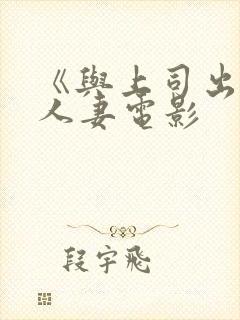 《與上司出
人妻電影
段宇飛